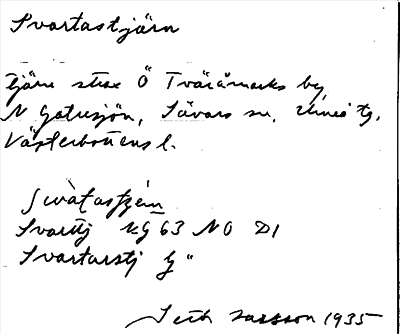 Svartastjärn
tjärn strax Ö Tväråmarks by,
N Gatusjön, Sävars sn, Umeå tg,
Västerbottens l.
Svartj KG 63 NO D1
Svartarstj G"
Seth Larsson 1935